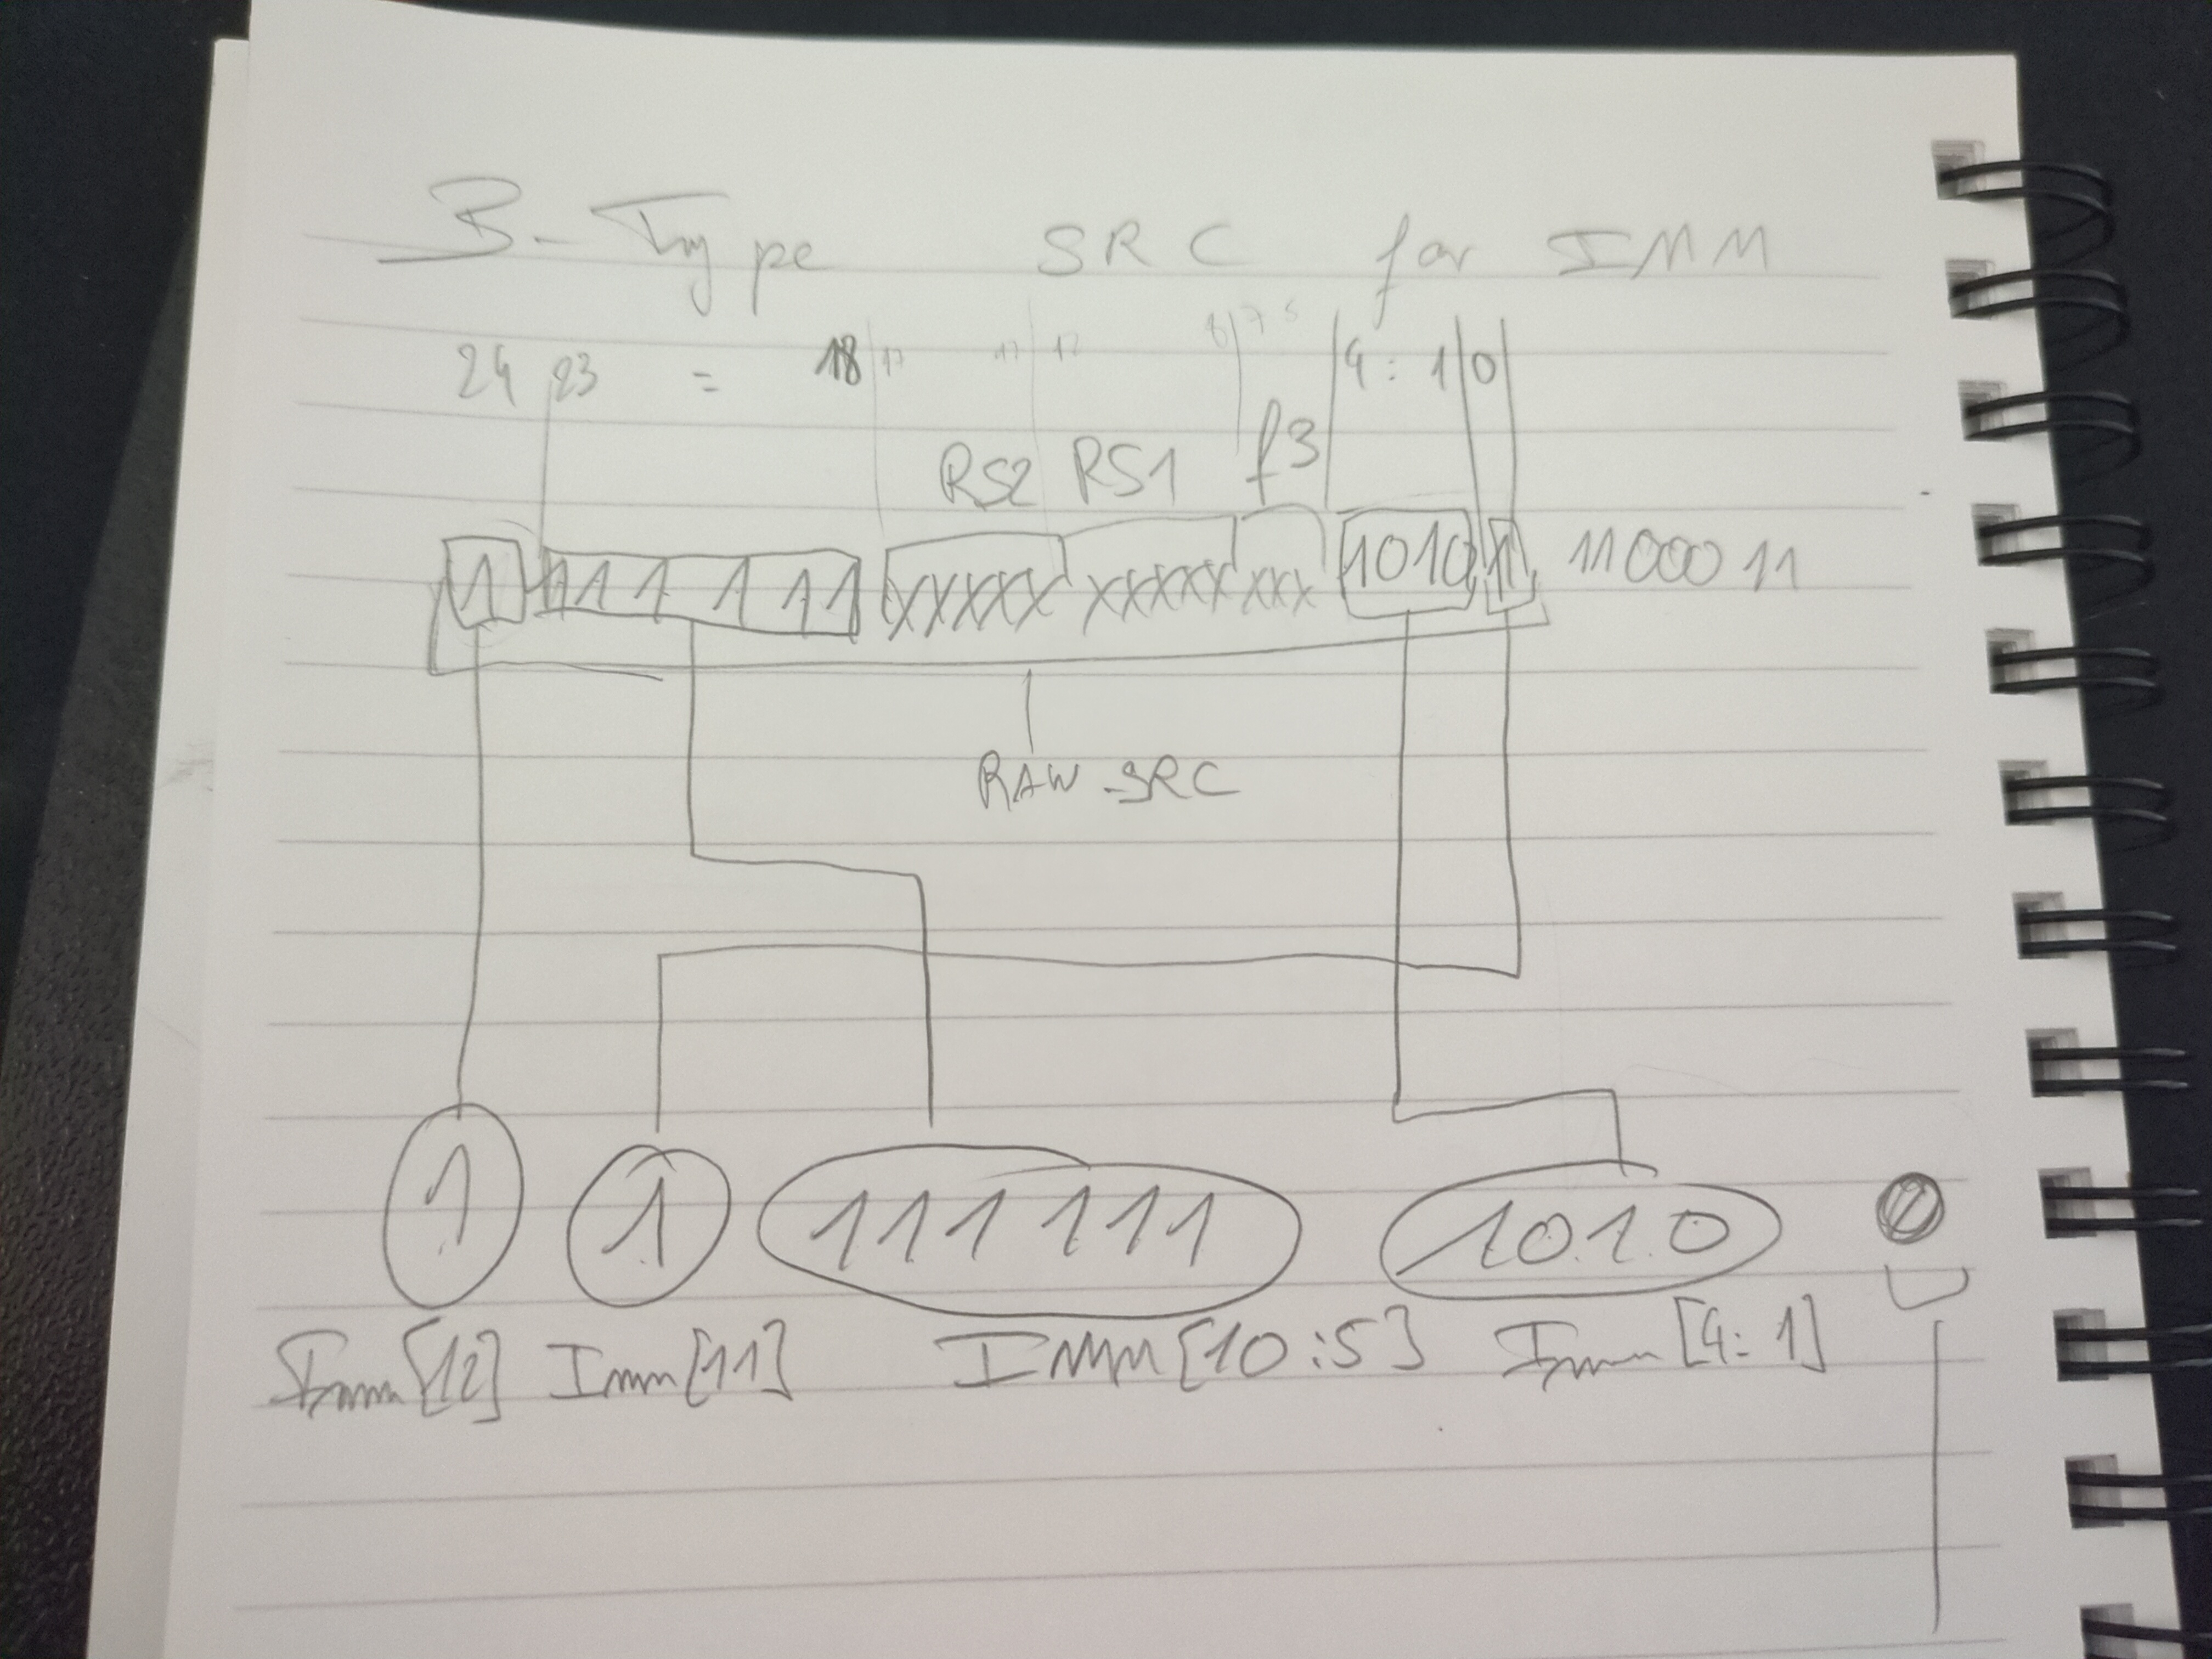 B-Type SRC for IMM
24 23 = 18 17 12 8 7 5 4 : 1 0
RS2 RS1 f3
1 111 111 xxxxx xxxxx xxx 1010 1 1100011
RAW_SRC
1 1 111 111 1010 0
Imm[12] Imm[11] Imm[10:5] Imm[4:1]